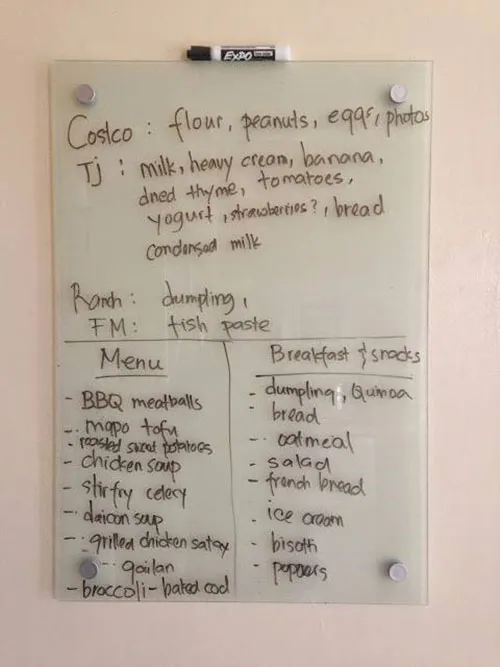 EXPO
Costco : flour, peanuts, eggs, photos
Tj : milk, heavy cream, banana,
dried thyme, tomatoes,
yogurt, strawberries?, bread
condensed milk
Ranch: dumpling,
FM: fish paste
Menu
- BBQ meatballs
- mapo tofu
- roasted sweet potatoes
- chicken soup
- stirfry celery
- daicon soup
- grilled chicken satay
- gailan
- broccoli - baked cod
Breakfast & snacks
- dumpling, Quinoa
- bread
- oatmeal
- salad
- french bread
- ice cream
- biscotti
- poppers